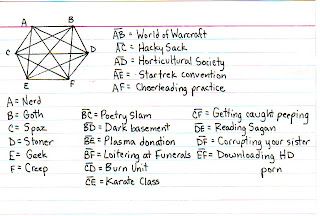 A B
C D
E F
AB = World of Warcraft
AC = Hacky Sack
AD = Horticultural Society
AE = Startrek convention
AF = Cheerleading practice
A = Nerd
B = Goth
C = Spaz
D = Stoner
E = Geek
F = Creep
BC = Poetry Slam
BD = Dark basement
BE = Plasma donation
BF = Loitering at Funerals
CD = Burn Unit
CE = Karate Class
CF = Getting caught peeping
DE = Reading Sagan
DF = Corrupting your sister
EF = Downloading HD
porn